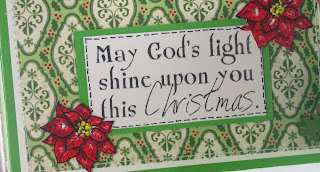 May God's light
shine upon you
this Christmas.